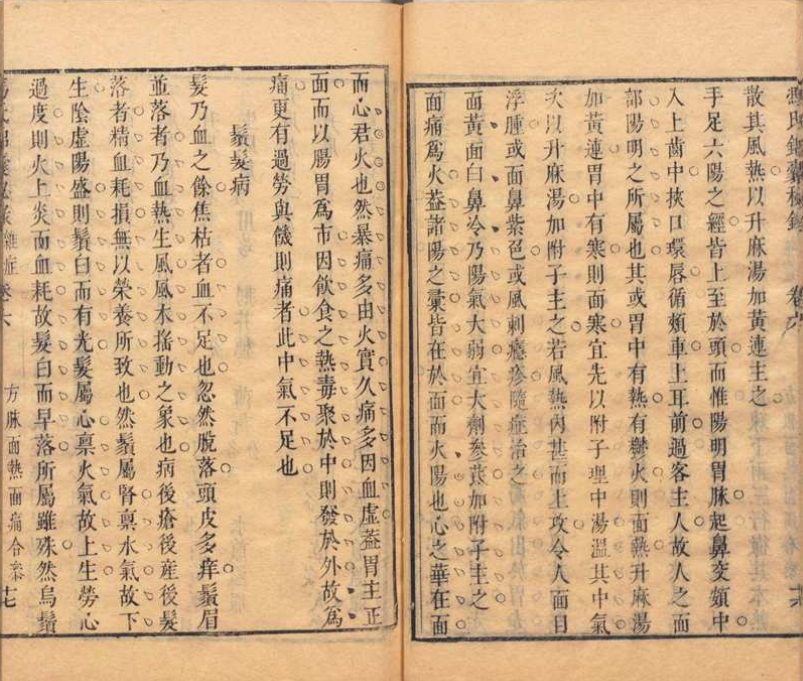 馮氏錦囊秘錄 卷六
散其風熱以升麻湯加黃連主之
手足六陽之經皆上至於頭而惟陽明胃脉起鼻交頞中
入上齒中挾口環唇循頰車上耳前過客主人故人之面
部陽明之所屬也其或胃中有熱有鬱火則面熱升麻湯
加黃連胃中有寒則面寒宜先以附子理中湯溫其中氣
次以升麻湯加附子主之若風熱內甚而上攻令人面目
浮腫或而鼻紫色或風刺癮疹隨症治之
面黃面白鼻冷乃陽氣大弱宜大劑參茋加附子主之
面痛爲火蓋諸陽之會皆在於面而火陽也心之華在面
而心君火也然暴痛多由火實久痛多因血虛蓋胃主正
面而以腸胃爲市因飲食之熱毒聚於中則發於外故爲
痛更有過勞與饑則痛者此中氣不足也
鬚髮病
髮乃血之餘焦枯者血不足也忽然脫落頭皮多痒鬚眉
並落者乃血熱生風風木搖動之象也病後瘡後産後髮
落者精血耗損無以榮養所致也然鬚屬腎禀水氣故下
生陰虛陽盛則鬚白而有光髮屬心禀火氣故上生勞心
過度則火上炎而血耗故髮白而早落所屬雖殊然烏鬚
雜症卷六 方脉面熱面痛合叅 十七